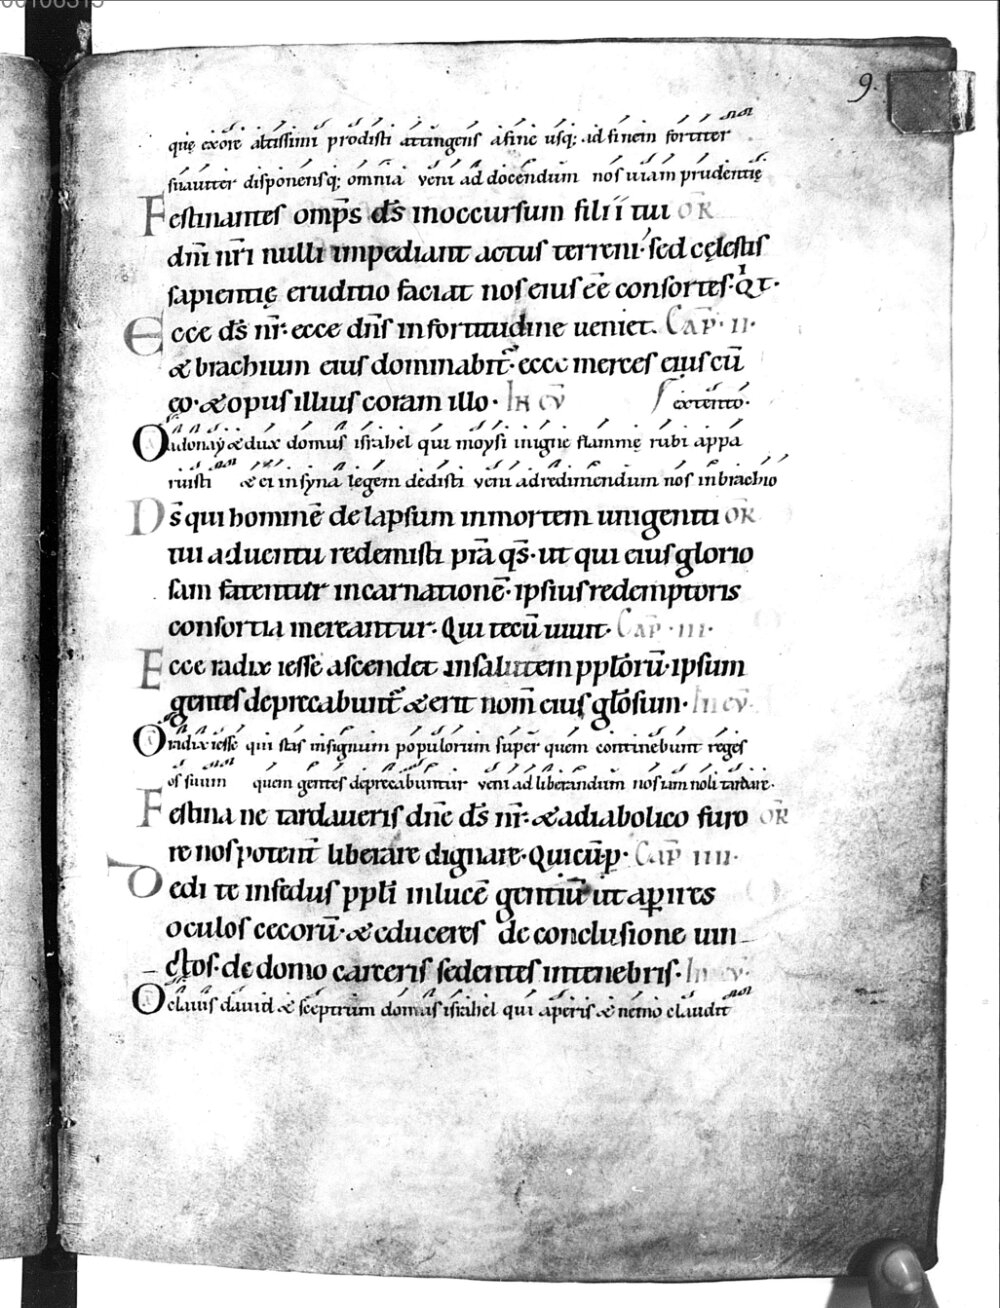 00106315
9.
quę ex ore altissimi prodisti attingens a fine usq; ad finem fortiter
suauiter disponensq; omnia veni ad docendum nos uiam prudentię
Festinantes omp̄s d̄s in occursum filii tui OR̄
dn̄i nr̄i nulli impediant actus terreni· sed cęlestis
sapientię eruditio faciat nos eius eē consortes· Q́T·
Ecce d̄s nr̄· ecce dn̄s in fortitudine ueniet. CAP̄· II·
& brachium eius dominabit̄· ecce merces eius cū
eo· & opus illius coram illo· IN EV̄ extento·
O adonaÿ & dux domus israhel qui moysi in igne flammę rubi appa
ruisti & ei in syna legem dedisti veni ad redimendum nos in brachio
D̄s qui hominē delapsum in mortem unigeniti OR̄
tui aduentu redemisti p̄ra q̄s· ut qui eius glorio
sam fatentur incarnationē· ipsius redemptoris
consortia mereantur· Qui tecū uiuit· CAP̄ · III·
Ecce radix iesse ascendet in salutem pp̄lorū· ipsum
gentes deprecabunt̄ & erit nom̄ eius gl̄osum· IN EV̄·
O radix iesse qui stas in signum populorum super quem continebunt reges
os suum quem gentes deprecabuntur veni ad liberandum nos iam noli tardare·
Festina ne tardaueris dn̄e d̄s nr̄· & a diabolico furo OR̄
re nos potent̄ liberare dignare· Qui cū p· CAP̄ IIII·
Dedi te in fedus pp̄li in lucē gentiū ut aꝑires
oculos cecorū· & educeres de conclusione uin
ctos· de domo carceris sedentes in tenebris· IN EV̄·
O clauis dauid & sceptrum domus israhel qui aperis & nemo claudit